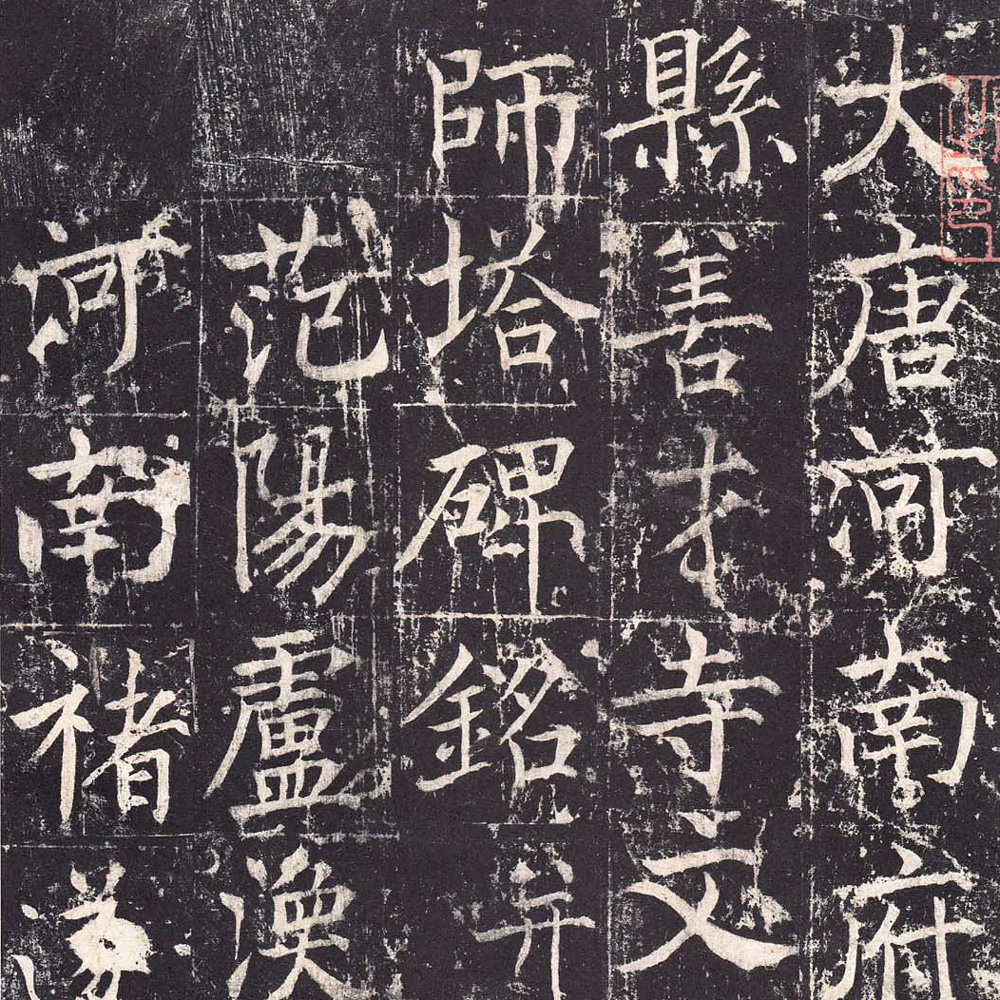 大唐河南府
縣善才寺文
師塔碑銘并
范陽盧渙
河南褚遂